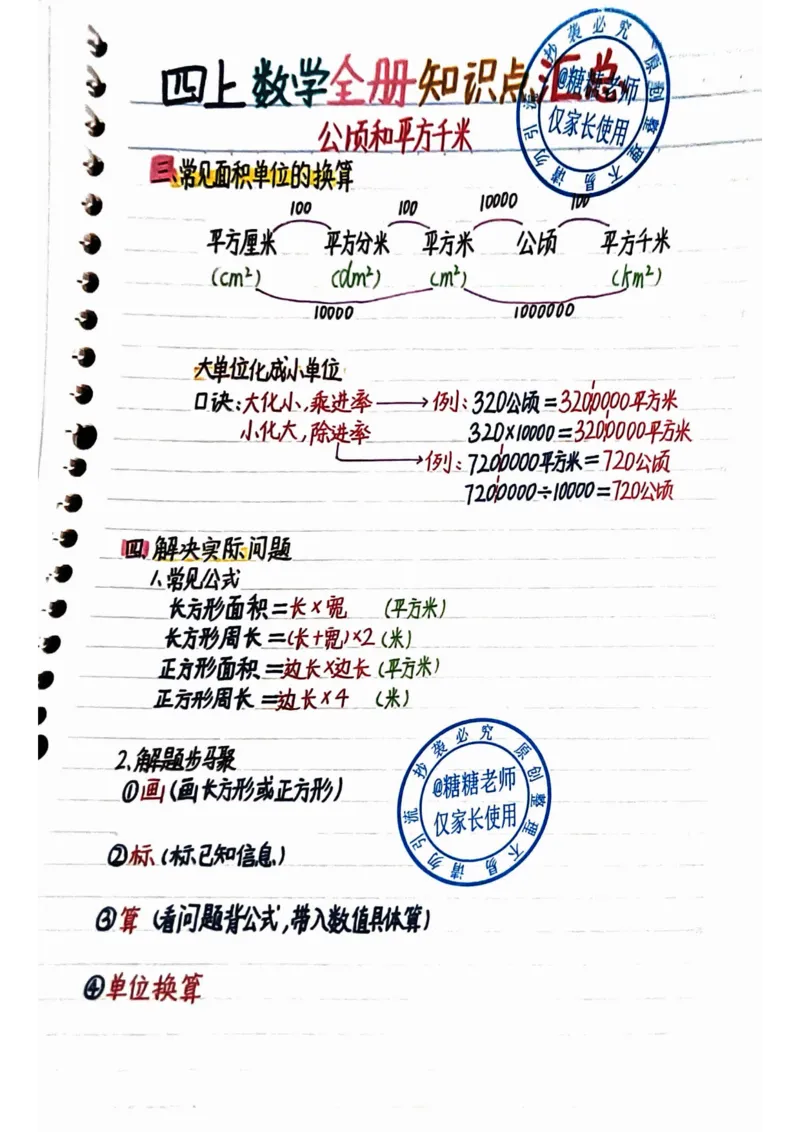 四上数学全册知识点汇总
公顷和平方千米
三、常见面积单位的换算
100 100 10000 100
平方厘米 平方分米 平方米 公顷 平方千米
(cm²) (dm²) (m²) (km²)
10000 1000000
大单位化成小单位
口诀:大化小,乘进率 → 例:320公顷=3200000平方米
320×10000=3200000平方米
小化大,除进率
→例:7200000平方米=720公顷
7200000÷10000=720公顷
四、解决实际问题
1.常见公式
长方形面积=长×宽 (平方米)
长方形周长=(长+宽)×2 (米)
正方形面积=边长×边长 (平方米)
正方形周长=边长×4 (米)
2.解题步骤
①画(画长方形或正方形)
②标(标已知信息)
③算(看问题背公式,带入数值具体算)
④单位换算
原创整理不易请勿引流抄袭必究
@糖糖老师
仅家长使用
原创整理不易请勿引流抄袭必究
@糖糖老师
仅家长使用